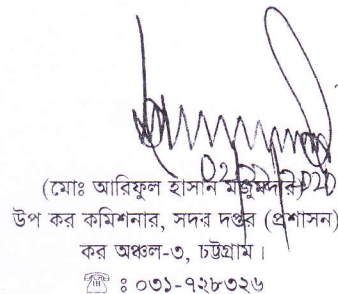 (মোঃ আরিফুল হাসান মজুমদার)
উপ কর কমিশনার, সদর দপ্তর (প্রশাসন)
কর অঞ্চল-৩, চট্টগ্রাম।
☏ : ০৩১-৭২৮৩২৬